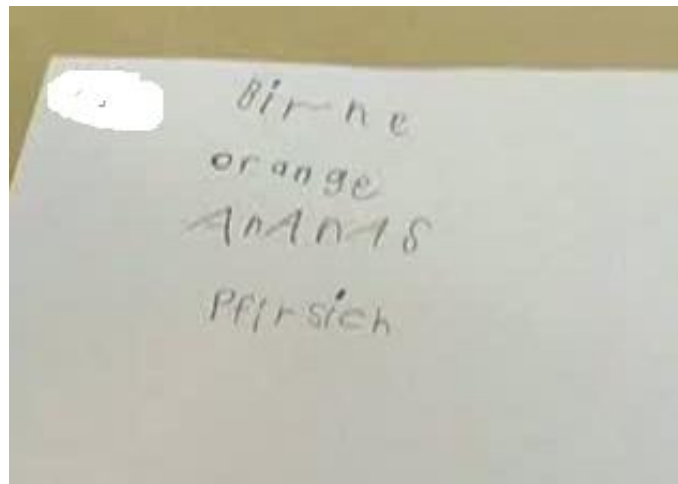 Birne
orange
AnAnAS
Pfirsich